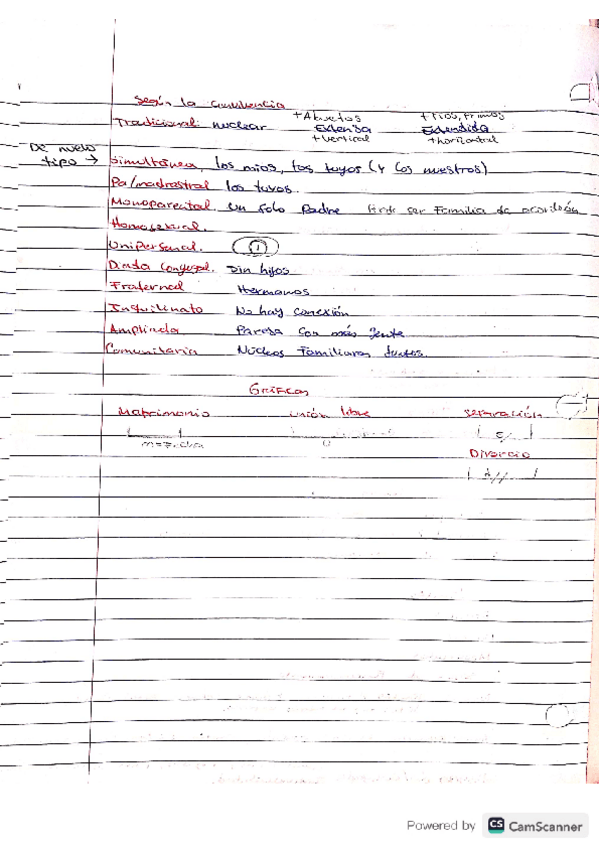 Según la convivencia
+Abuelos +Tíos, Primos
Tradicional: nuclear Extensa Extendida
+vertical +horizontal
De nuevo
tipo → Simultánea, los míos, los tuyos (y los nuestros)
Pa/madrastral los tuyos.
Monoparental. Un solo Padre ser Familia de acordeón
Homosexual.
Unipersonal. 1
Diada conyugal. Sin hijos
Fraternal Hermanos
Inquilinato No hay conexión
Ampliada Pareja con más gente
Comunitaria Núcleos Familiares Juntos
Gráficas
Matrimonio unión libre separación
Divorcio
Powered by CS CamScanner